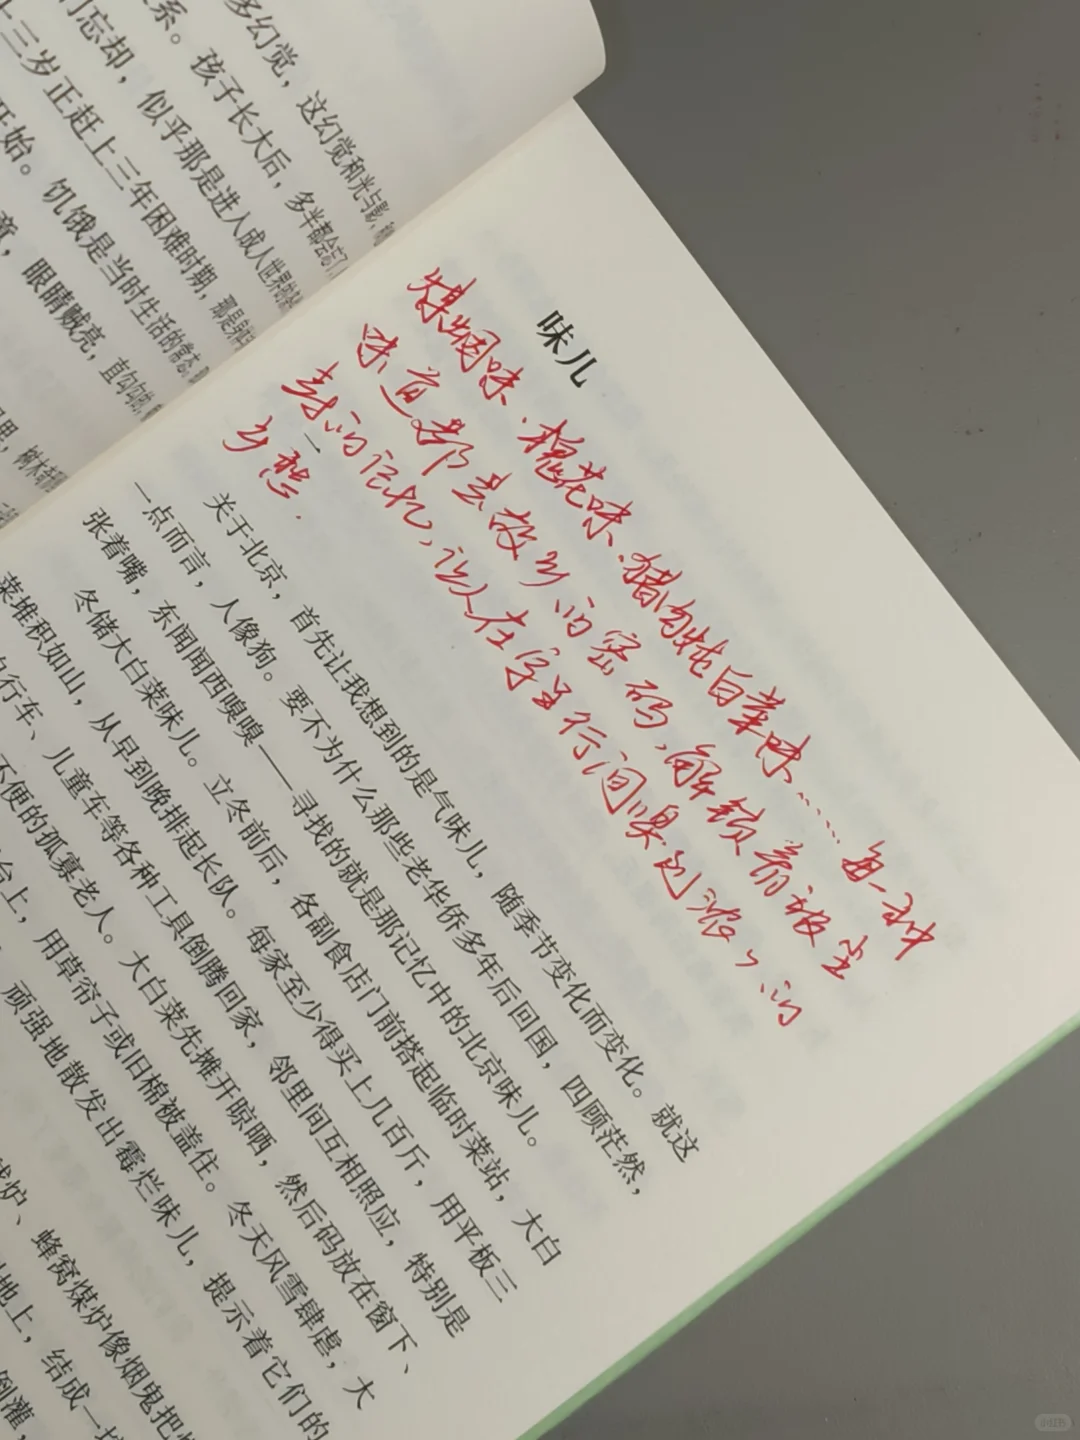 多幻觉，这幻觉和光与影，
系。孩子长大后，多半都会
们忘却，似乎那是进入成人世界的
十三岁正赶上三年困难时期，那是
开始。饥饿是当时生活的常态，
眼睛贼亮，直勾勾的，
里，树木
味儿
煤烟味、槐花味、猪肉炖白菜味……每一种
味道都是故乡的密码，解锁着被尘
封的记忆，让人在字里行间嗅到浓浓的
乡愁.
一
关于北京，首先让我想到的是气味儿，随季节变化而变化。就这
一点而言，人像狗。要不为什么那些老华侨多年后回国，四顾茫然，
张着嘴，东闻闻西嗅嗅——寻找的就是那记忆中的北京味儿。
冬储大白菜味儿。立冬前后，各副食店门前搭起临时菜站，大白
菜堆积如山，从早到晚排起长队。每家至少得买上几百斤，用平板三
行车、儿童车等各种工具倒腾回家，邻里间互相照应，特别是
不便的孤寡老人。大白菜先摊开晾晒，然后码放在窗下、
台上，用草帘子或旧棉被盖住。冬天风雪肆虐，大
顽强地散发出霉烂味儿，提示着它们的
炉、蜂窝煤炉像烟鬼把
地上，结成一
倒灌，